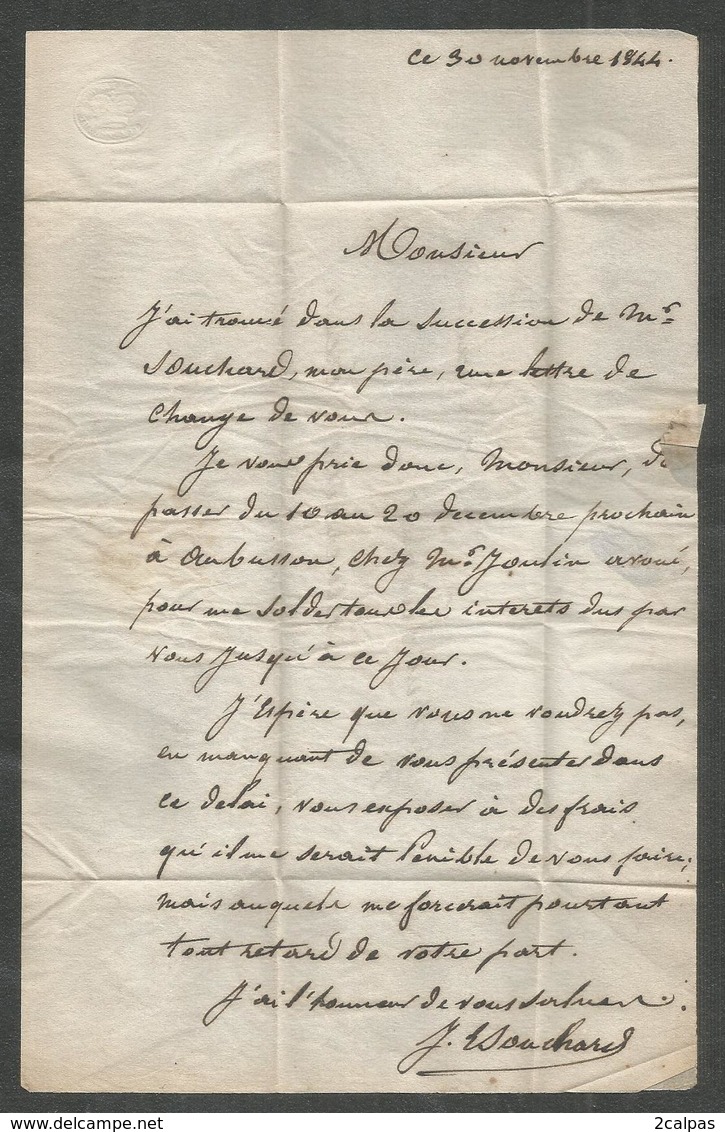 Ce 30 novembre 1844.
Monsieur
J'ai trouvé dans la succession de Mr
Souchard, mon père, une lettre de
change de vous.
Je vous prie donc, Monsieur, de
passer du 10 au 20 decembre prochain
à Aubusson, chez Mr avoué,
pour me solder tous les interets dus par
vous jusqu'à ce jour.
J'espère que vous ne voudrez pas,
en manquant de vous présenter dans
ce delai, vous exposer à des frais
qu'il me serait penible de vous faire,
mais auquels me forcerait pourtant
tout retard de votre part.
J'ai l'honneur de vous saluer.
J. Souchard
2calpas